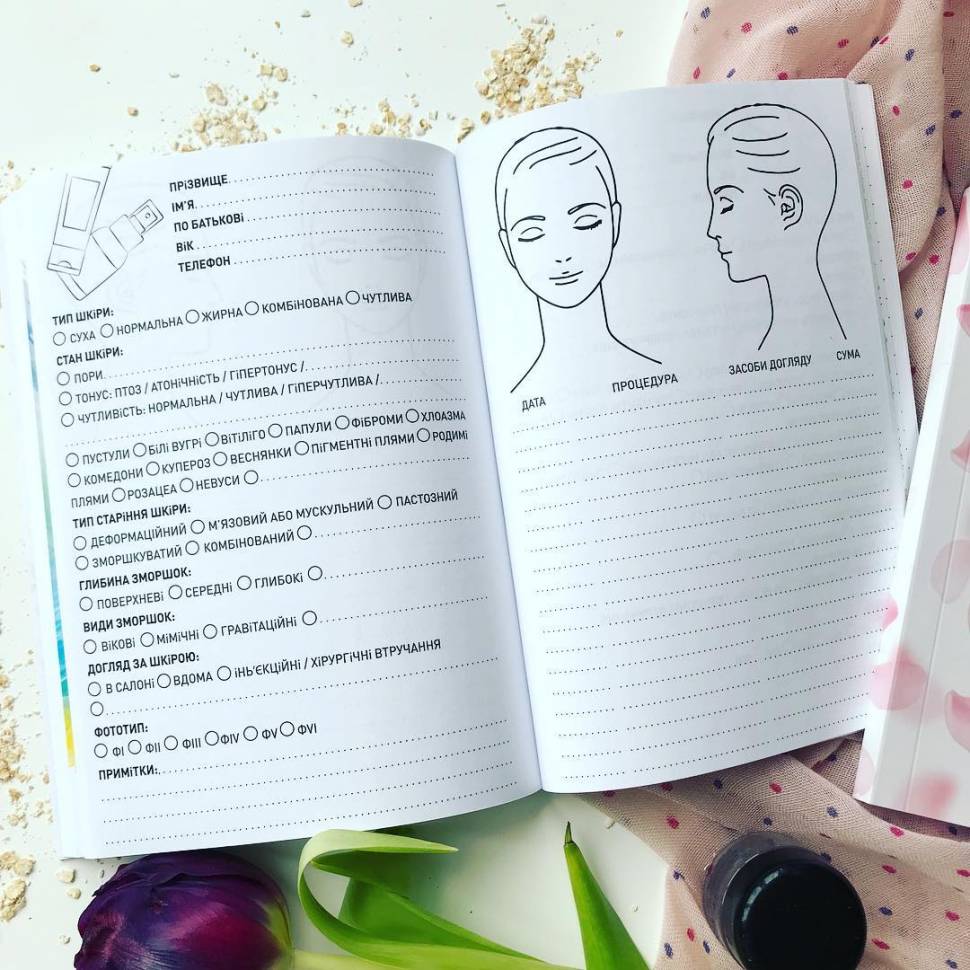 ПРІЗВИЩЕ
ІМ'Я
ПО БАТЬКОВІ
ВІК
ТЕЛЕФОН
ТИП ШКІРИ:
СУХА НОРМАЛЬНА ЖИРНА КОМБІНОВАНА ЧУТЛИВА
СТАН ШКІРИ:
ПОРИ
ТОНУС: ПТОЗ / АТОНІЧНІСТЬ / ГІПЕРТОНУС /
ЧУТЛИВІСТЬ: НОРМАЛЬНА / ЧУТЛИВА / ГІПЕРЧУТЛИВА /
ПУСТУЛИ БІЛІ ВУГРІ ВІТІЛІГО ПАПУЛИ ФІБРОМИ ХЛОАЗМА
КОМЕДОНИ КУПЕРОЗ ВЕСНЯНКИ ПІГМЕНТНІ ПЛЯМИ РОДИМІ
ПЛЯМИ РОЗАЦЕА НЕВУСИ
ТИП СТАРІННЯ ШКІРИ:
ДЕФОРМАЦІЙНИЙ М'ЯЗОВИЙ АБО МУСКУЛЬНИЙ ПАСТОЗНИЙ
ЗМОРШКУВАТИЙ КОМБІНОВАНИЙ
ГЛИБИНА ЗМОРШОК:
ПОВЕРХНЕВІ СЕРЕДНІ ГЛИБОКІ
ВИДИ ЗМОРШОК:
ВІКОВІ МІМІЧНІ ГРАВІТАЦІЙНІ
ДОГЛЯД ЗА ШКІРОЮ:
В САЛОНІ ВДОМА ІНЬ'ЄКЦІЙНІ / ХІРУРГІЧНІ ВТРУЧАННЯ
ФОТОТИП:
ФI ФII ФIII ФIV ФV ФVI
ПРИМІТКИ:
ДАТА ПРОЦЕДУРА ЗАСОБИ ДОГЛЯДУ СУМА